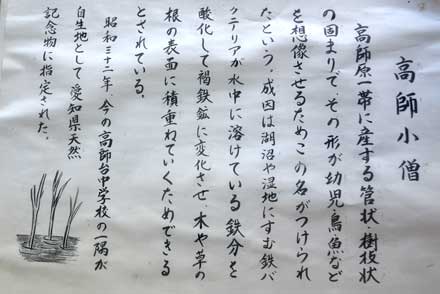 高師小僧
高師原一帯に産する管状・樹枝状
の固まりで、その形が幼児・鳥・魚など
を想像させるためこの名がつけられ
たという。成因は湖沼や湿地にすむ鉄バ
クテリアが水中に溶けている鉄分を
酸化して褐鉄鉱に変化させ、木や草の
根の表面に積重ねていくためできる
とされている。
昭和三十二年、今の高師台中学校の一隅が
自生地として愛知県天然
記念物に指定された。